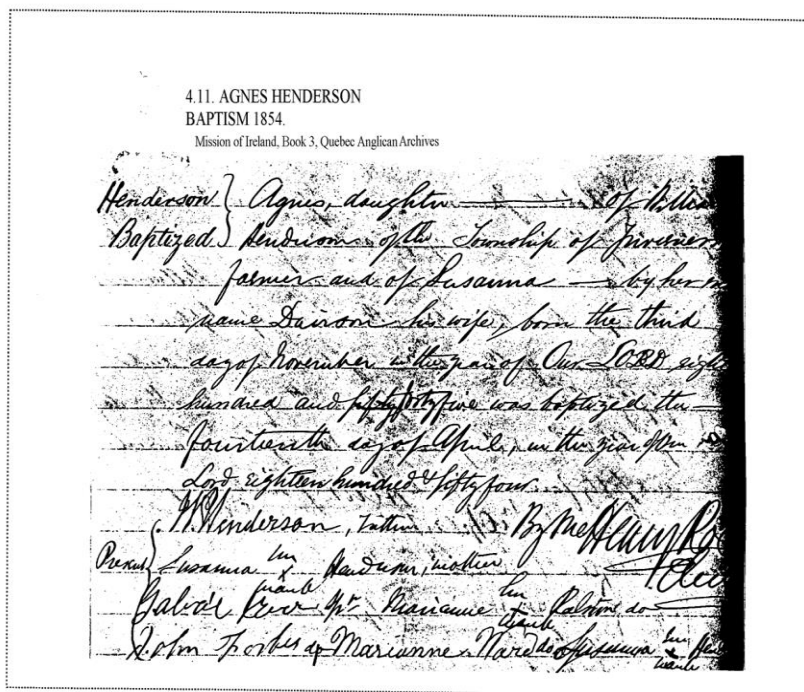 4.11. AGNES HENDERSON
BAPTISM 1854.
Mission of Ireland, Book 3, Quebec Anglican Archives
Henderson Agnes, daughter of
Baptized Henderson of the Township of
farmer and of Susanna by her
name his wife, born the third
day of November in the year of Our LORD
hundred and five was baptized the
fourteenth day of April, in the year of
Lord eighteen hundred & fifty four.
W. Henderson, By me Henry
Present Susanna Henderson, mother
mark
Marianne do
mark
John Forbes Marianne Ward do Susanna
mark